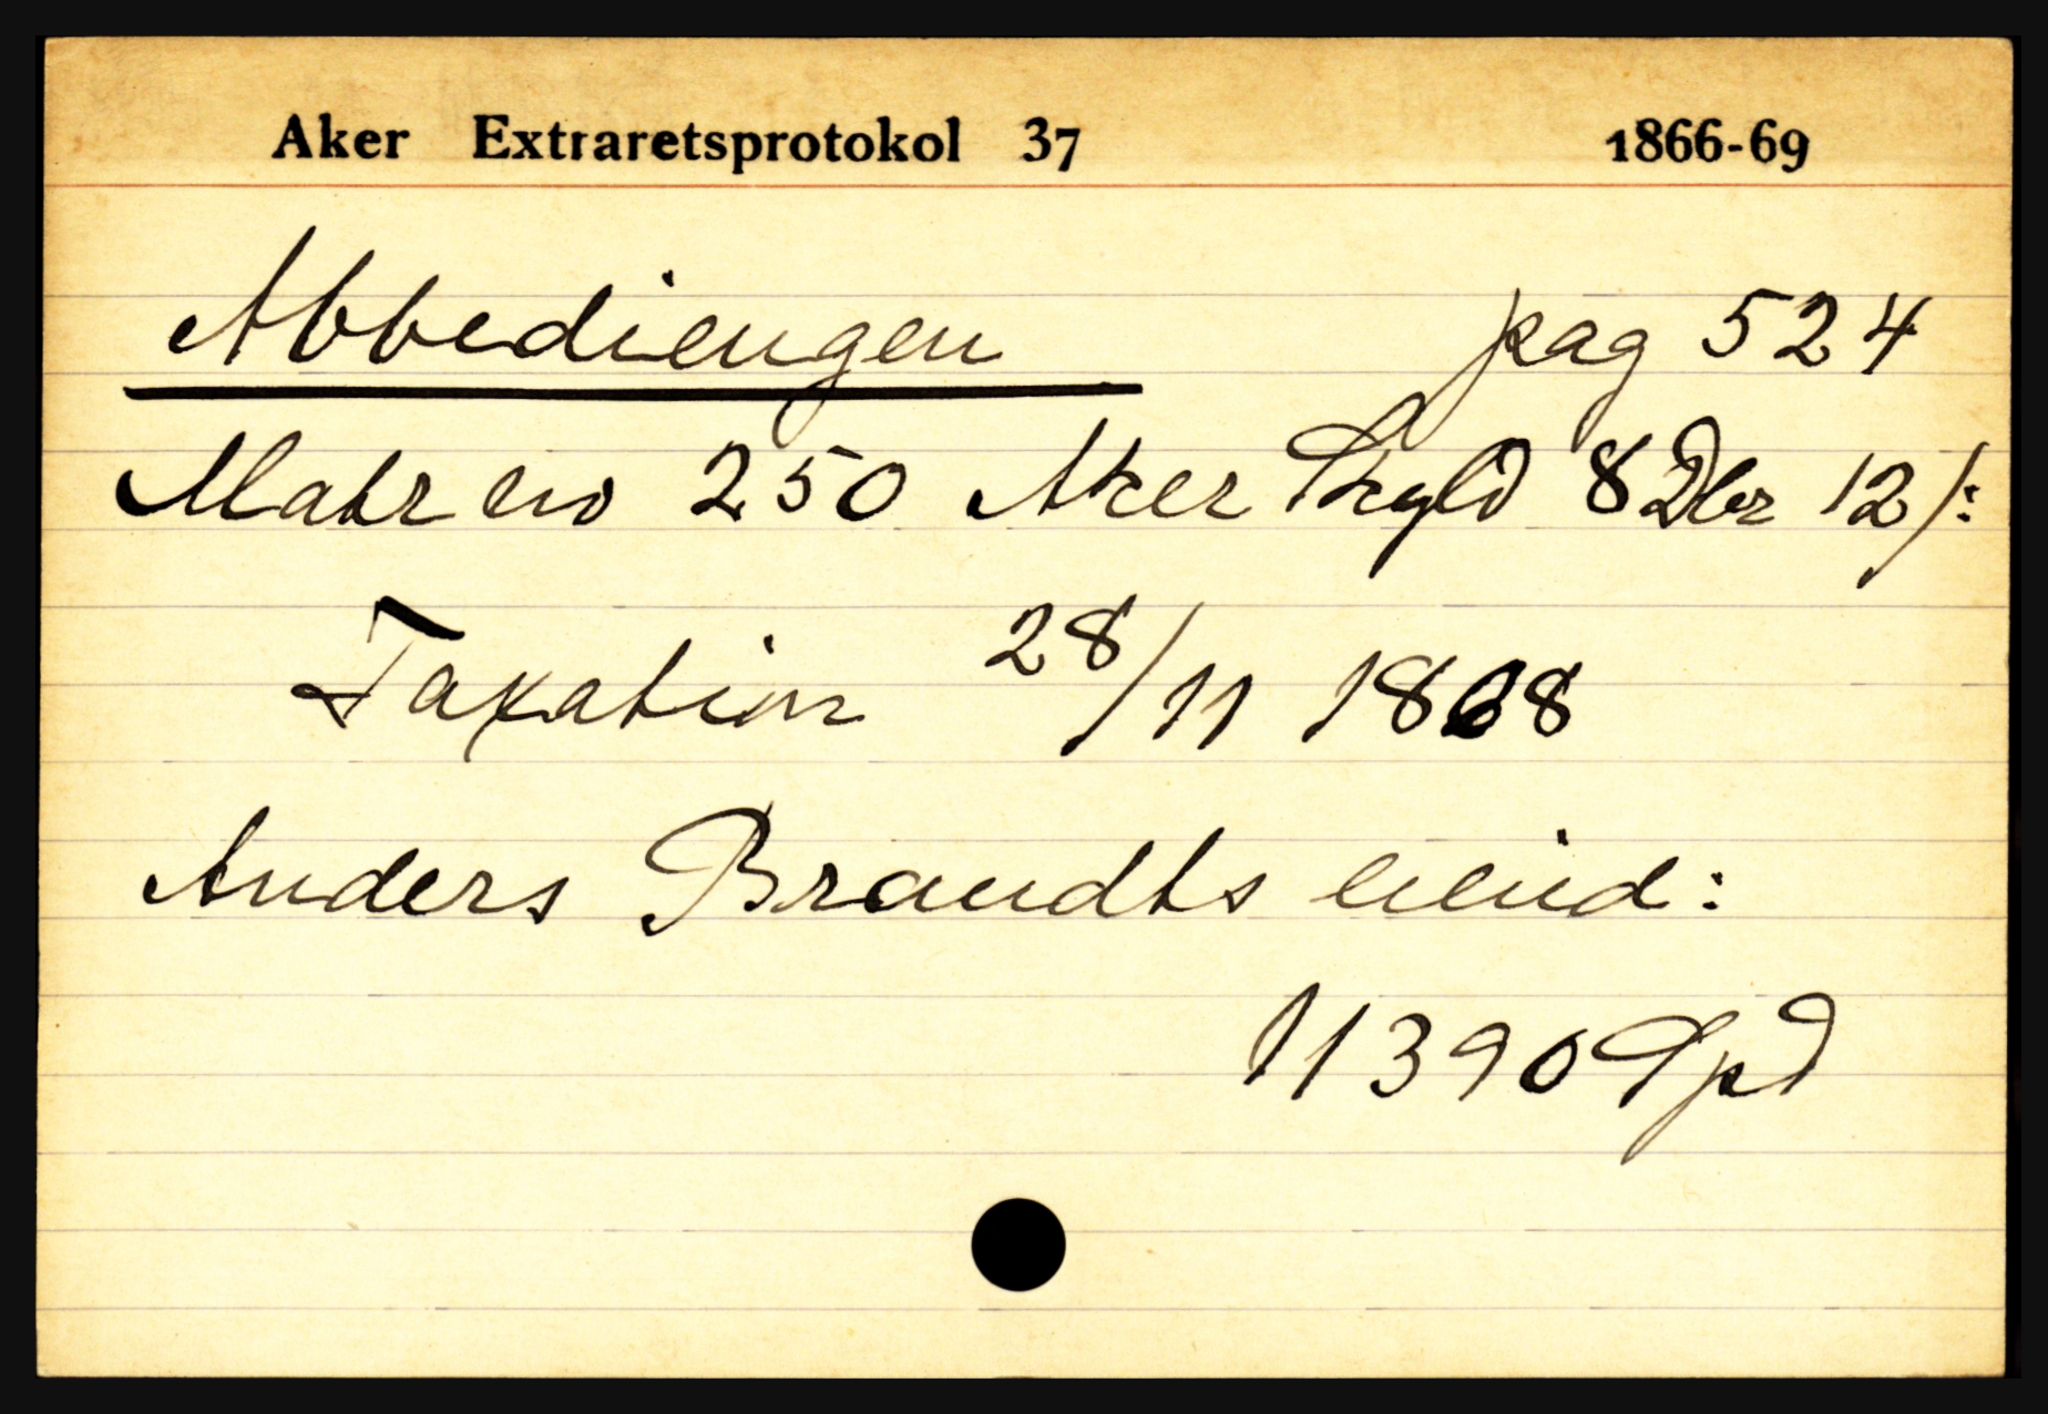 Aker Extraretsprotokol 37 1866-69
Abbediengen pag 524
Matr no 250 Aker Skyld 8 Dlr 12 /:
Taxation 28/11 1868
Anders Brandts eiend:
11390 Spd